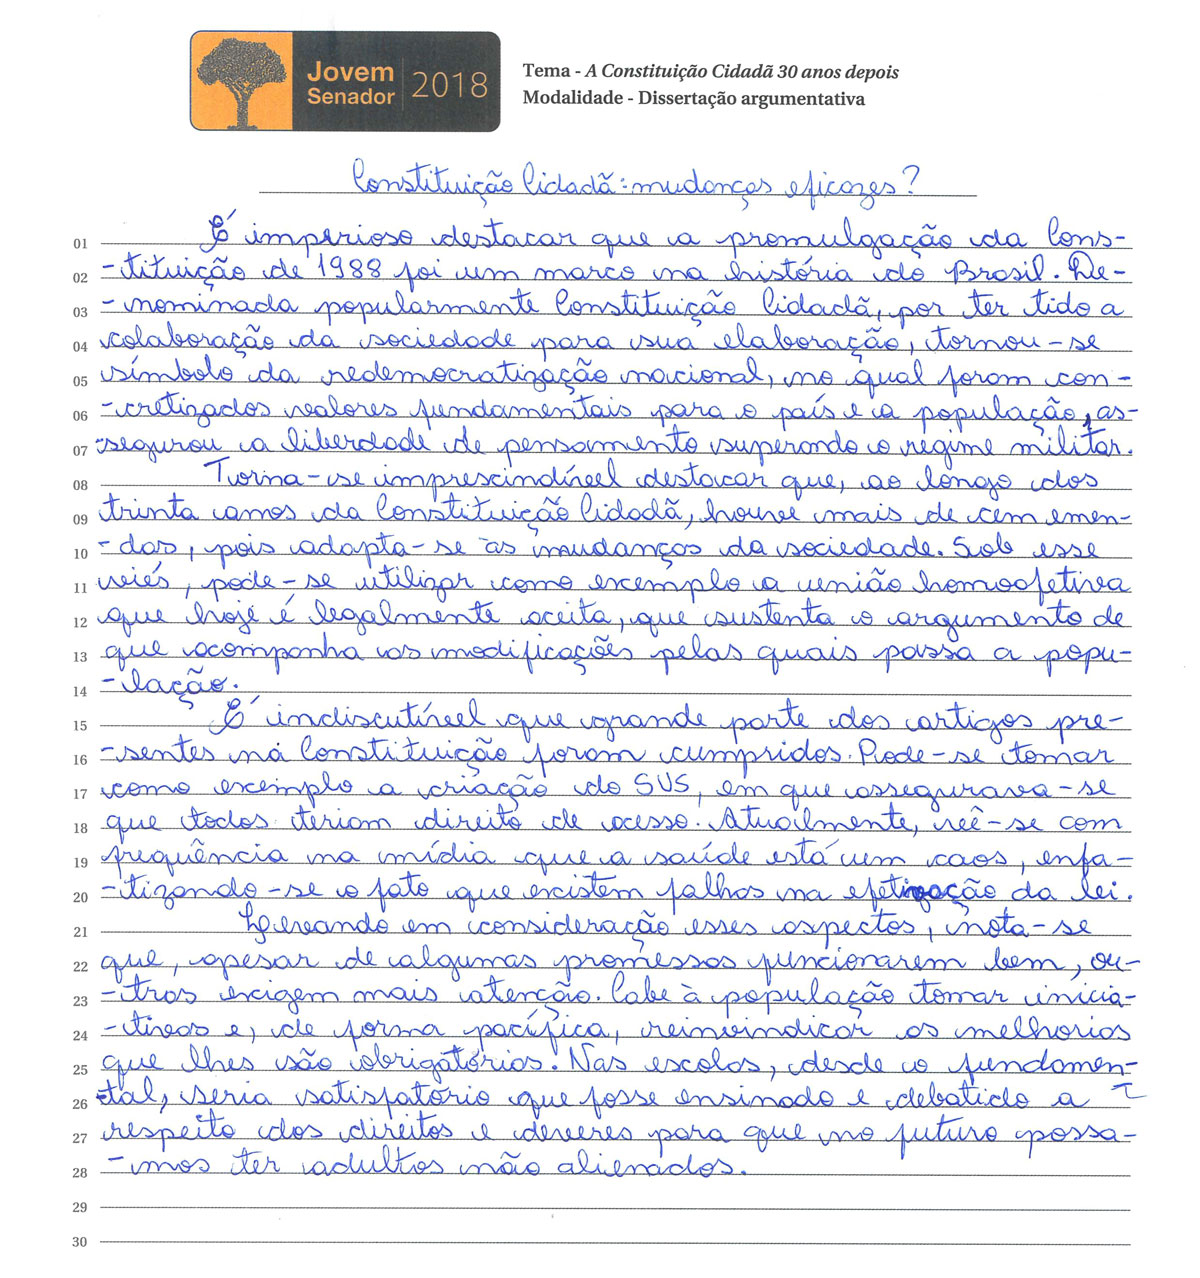 Jovem
Senador
2018
Tema - A Constituição Cidadã 30 anos depois
Modalidade - Dissertação argumentativa
Constituição Cidadã: mudanças eficazes?
01 É imperioso destacar que a promulgação da Cons-
02 -tituição de 1988 foi um marco na história do Brasil. De-
03 -nominada popularmente Constituição Cidadã, por ter tido a
04 colaboração da sociedade para sua elaboração, tornou-se
05 símbolo da redemocratização nacional, no qual foram con-
06 -cretizados valores fundamentais para o país e a população, as-
07 -segurou a liberdade de pensamento superando o regime militar.
08 Torna-se imprescindível destacar que, ao longo dos
09 trinta anos da Constituição Cidadã, houve mais de cem emen-
10 -das, pois adapta-se às mudanças da sociedade. Sob esse
11 viés, pode-se utilizar como exemplo a união homoafetiva
12 que hoje é legalmente aceita, que sustenta o argumento de
13 que acompanha as modificações pelas quais passa a popu-
14 -lação.
15 É indiscutível que grande parte dos artigos pre-
16 -sentes na Constituição foram cumpridos. Pode-se tomar
17 como exemplo a criação do SUS, em que assegurava-se
18 que todos teriam direito de acesso. Atualmente, vê-se com
19 frequência na mídia que a saúde está um caos, enfa-
20 -tizando-se o fato que existem falhas na efetivação da lei.
21 Levando em consideração esses aspectos, nota-se
22 que, apesar de algumas promessas funcionarem bem, ou-
23 -tras exigem mais atenção. Cabe à população tomar inicia-
24 -tivas e, de forma pacífica, reinvindicar as melhorias
25 que lhes são obrigatórias. Nas escolas, desde o fundamen-
26 tal, seria satisfatório que fosse ensinado e debatido a
27 respeito dos direitos e deveres para que no futuro possa-
28 -mos ter adultos não alienados.
29
30